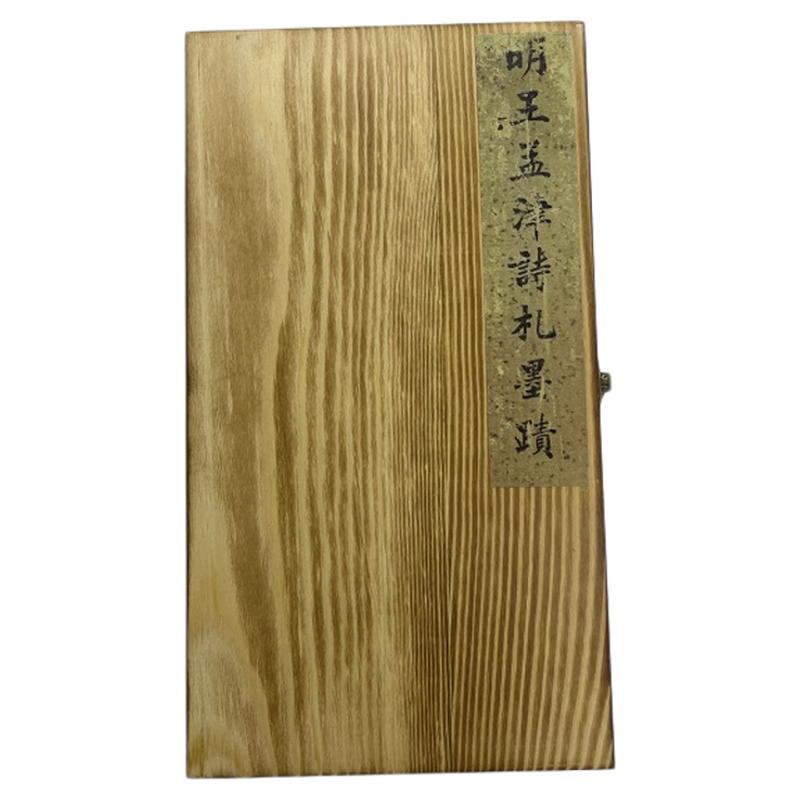 明王孟津詩札墨蹟